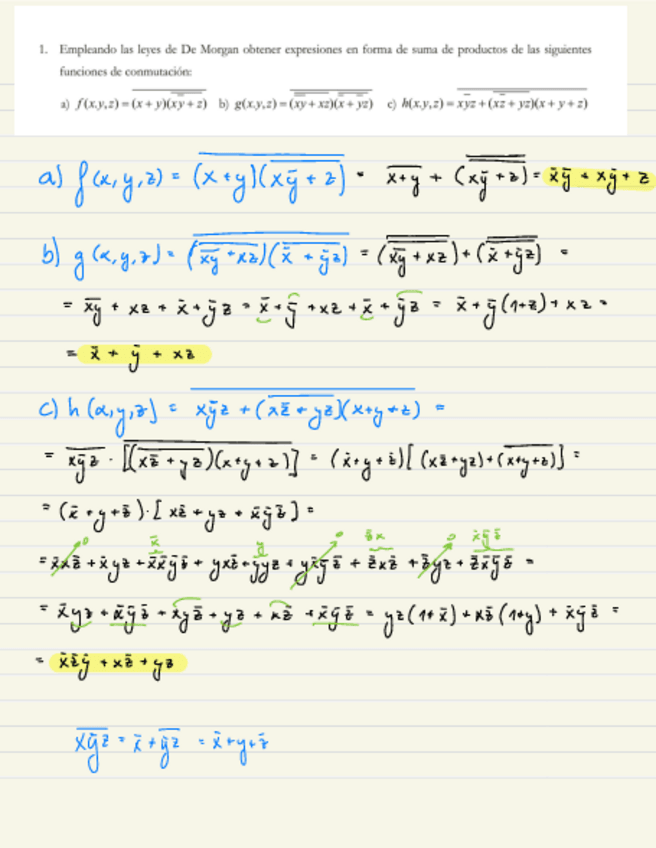 1. Empleando las leyes de De Morgan obtener expresiones en forma de suma de productos de las siguientes
funciones de conmutación:
a) f(x,y,z)=(x+y)(xy̅+z)̅ b) g(x,y,z)=(xy̅+xz)(x̅+y̅z) c) h(x,y,z)=xy̅z+(xz̅+yz)(x+y+z)
a) f(x,y,z) = (x+y)(xy̅+z) = x+y + (xy̅+z) = x̅y̅ + xy̅ + z
b) g(x,y,z) = (xy̅+xz)(x̅+y̅z) = (xy̅+xz)+(x̅+y̅z) =
= x̅y̅ + xz + x̅ + y̅z = x̅ + y̅ + xz + x̅ + y̅z = x̅ + y̅(1+z) + xz =
= x̅ + y̅ + xz
c) h(x,y,z) = xy̅z + (xz̅+yz)(x+y+z) =
= xy̅z · [(xz̅+yz)(x+y+z)] = (x̅+y+z̅)[(xz̅+yz)+(x+y+z)] =
= (x̅+y+z̅)·[xz̅+yz+x̅y̅z̅] =
0 x̅ y 0 z̅x 0 x̅y̅z̅
= x̅xz̅ + x̅yz + x̅x̅y̅z̅ + yxz̅ + yyz + yx̅y̅z̅ + z̅xz̅ + z̅yz + z̅x̅y̅z̅ =
= x̅yz + x̅y̅z̅ + xyz̅ + yz + xz̅ + x̅y̅z̅ = yz(1+x̅) + xz̅(1+y) + x̅y̅z̅ =
= x̅z̅y̅ + xz̅ + yz
xy̅z = x̅ + y̅z = x̅+y+z̅